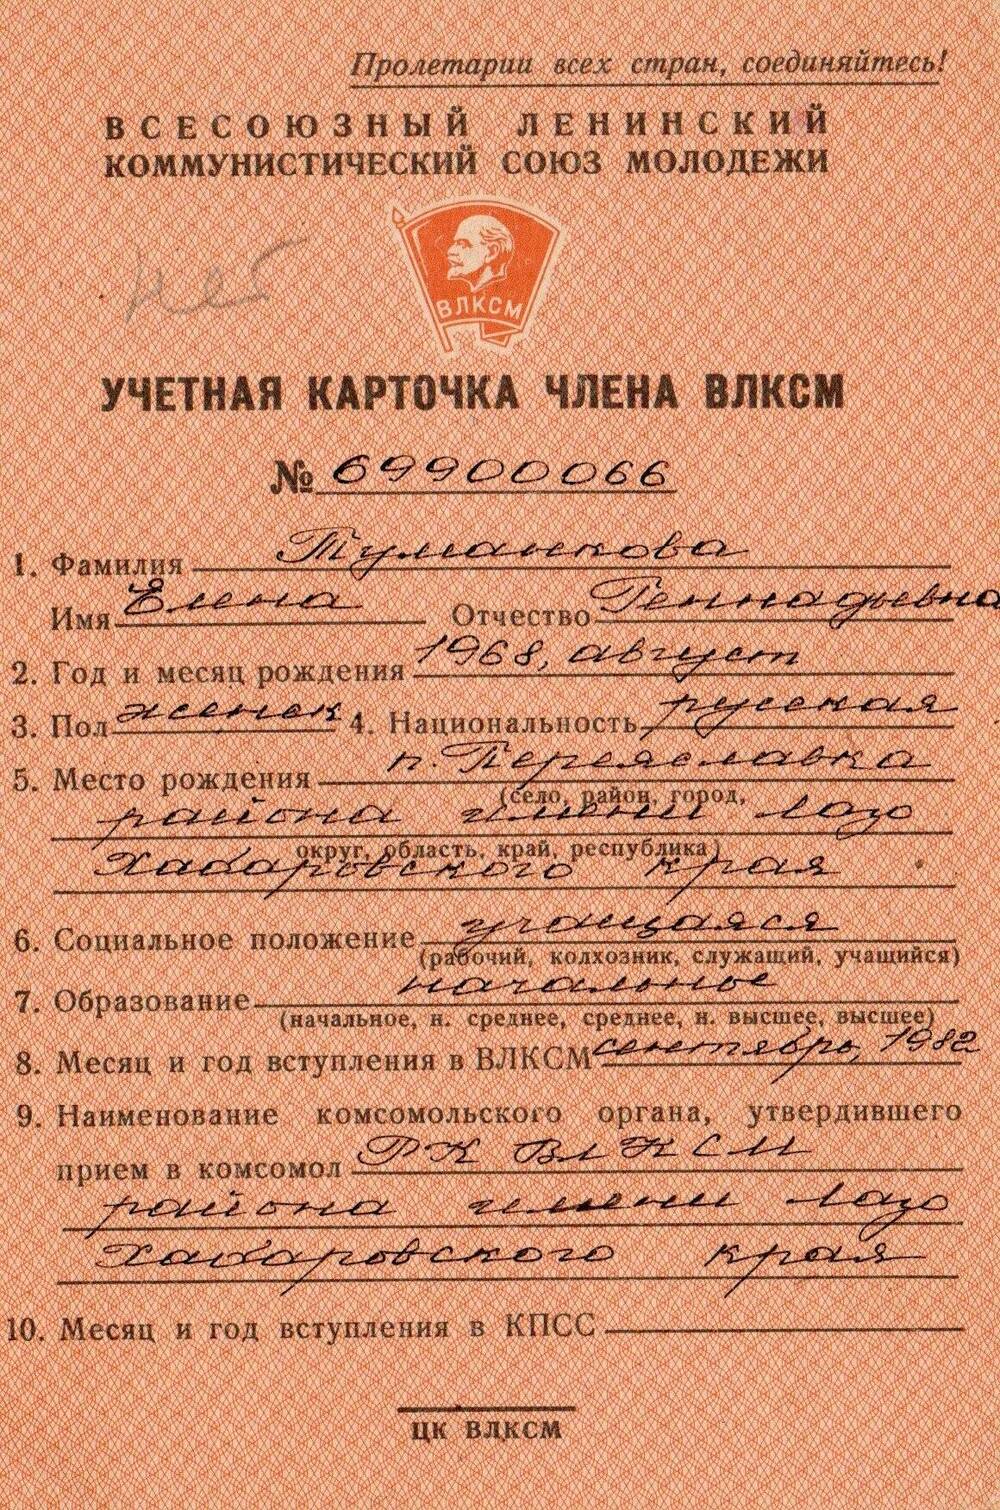 Пролетарии всех стран, соединяйтесь!
ВСЕСОЮЗНЫЙ ЛЕНИНСКИЙ
КОММУНИСТИЧЕСКИЙ СОЮЗ МОЛОДЕЖИ
нет
ВЛКСМ
УЧЕТНАЯ КАРТОЧКА ЧЛЕНА ВЛКСМ
№ 69900066
1. Фамилия Туманкова
Имя Елена Отчество Геннадьевна
2. Год и месяц рождения 1968, август
3. Пол женск 4. Национальность русская
5. Место рождения п. Переяславка
(село, район, город,
района имени Лазо
округ, область, край, республика)
Хабаровского края
6. Социальное положение учащаяся
(рабочий, колхозник, служащий, учащийся)
7. Образование начальное
(начальное, н. среднее, среднее, н. высшее, высшее)
8. Месяц и год вступления в ВЛКСМ сентябрь, 1982
9. Наименование комсомольского органа, утвердившего
прием в комсомол РК ВЛКСМ
района имени Лазо
Хабаровского края
10. Месяц и год вступления в КПСС
ЦК ВЛКСМ